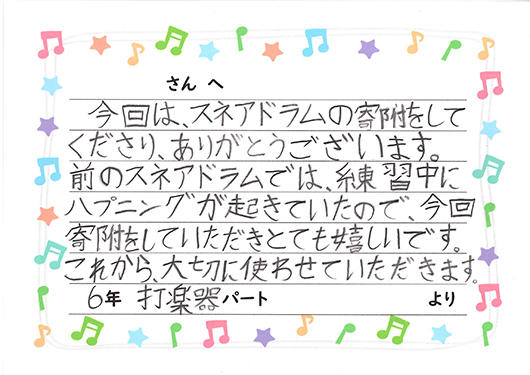 さん へ
今回は、スネアドラムの寄附をして
くださり、ありがとうございます。
前のスネアドラムでは、練習中に
ハプニングが起きていたので、今回
寄附をしていただきとても嬉しいです。
これから、大切に使わせていただきます。
6年 打楽器パート より